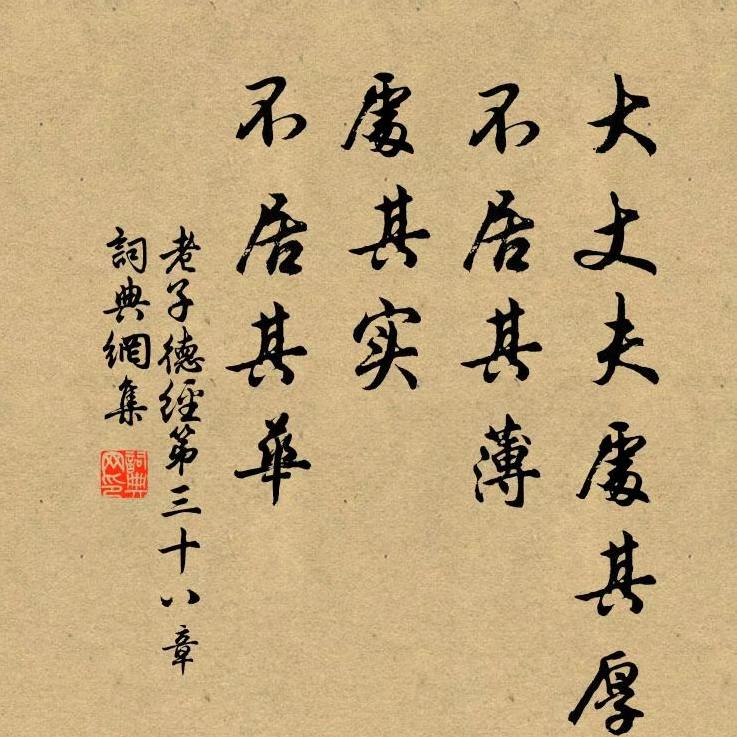 大丈夫處其厚
不居其薄
處其实
不居其華
老子德經第三十八章
詞典網集
詞典
网印